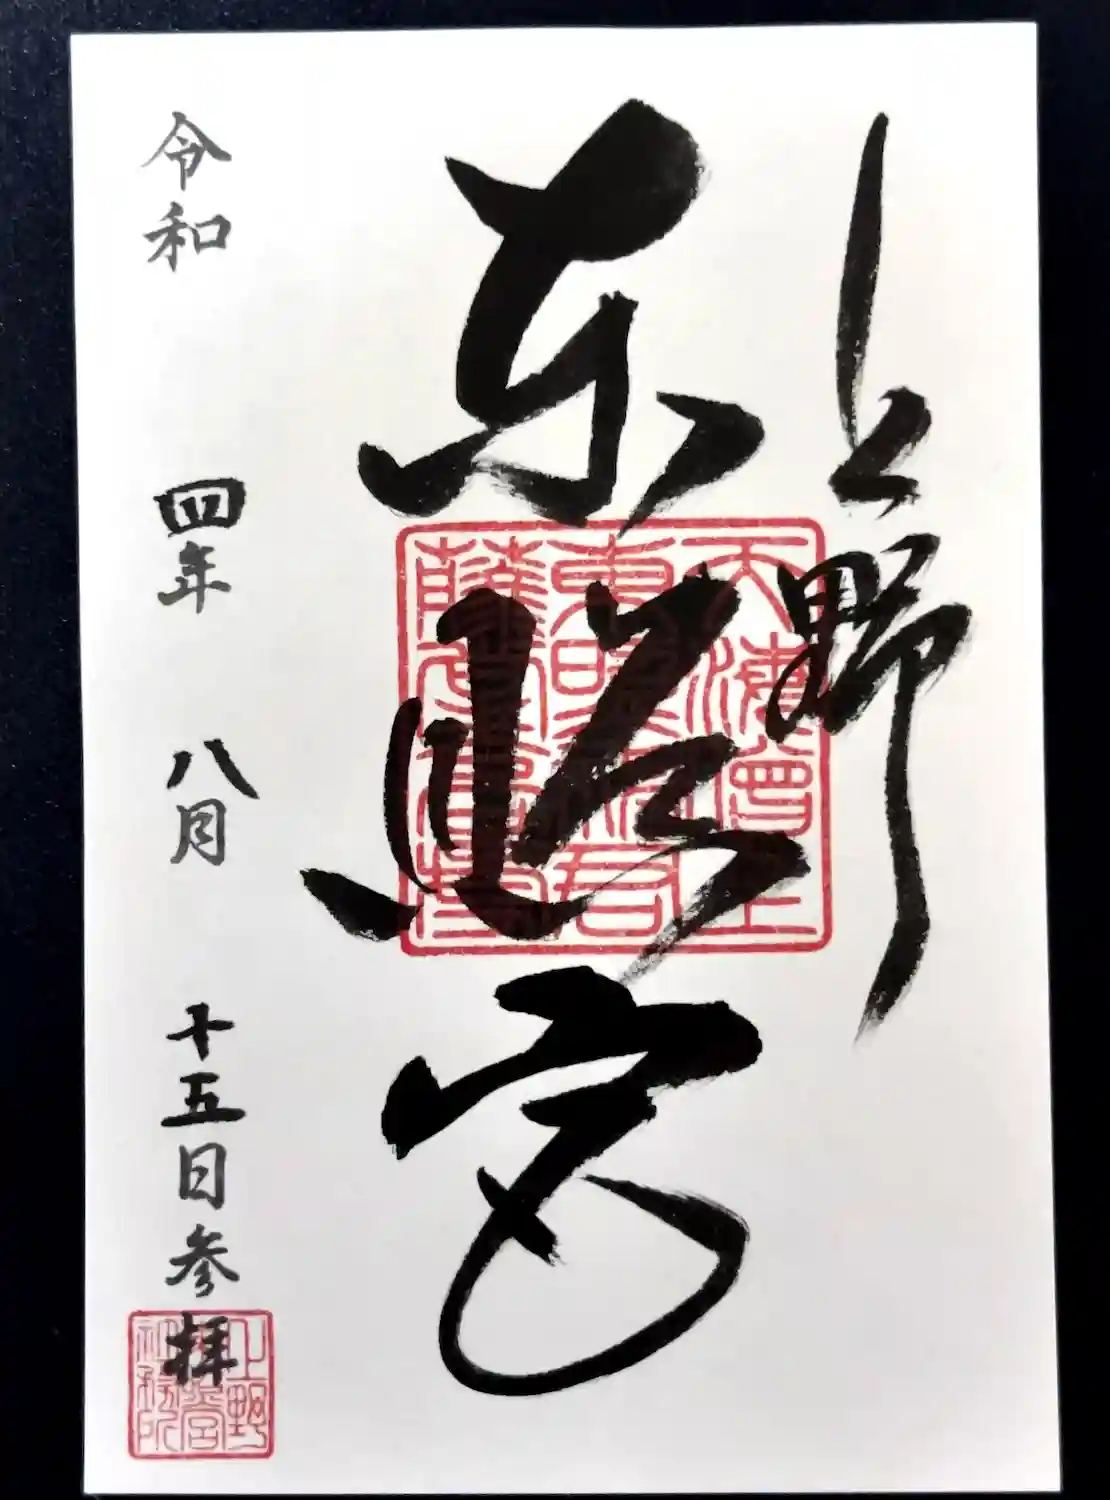 上野
東照宮
令和 四年 八月 十五日参拝
上野
東照宮
社務所